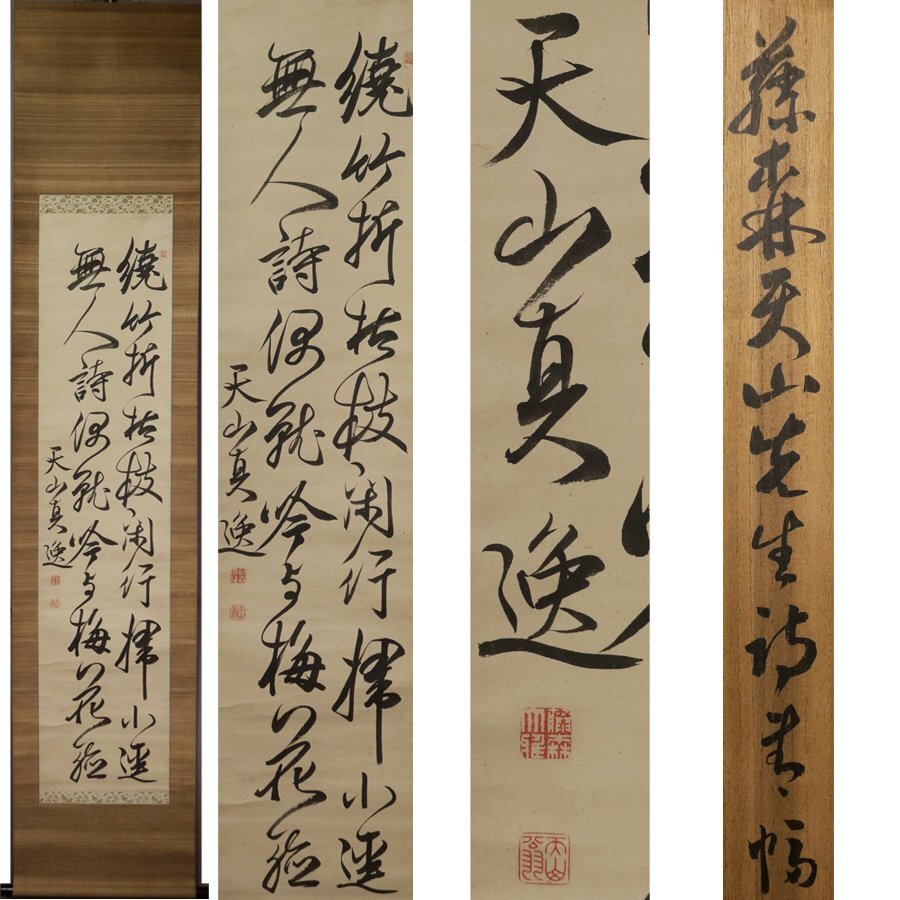 繞竹折枯枝閑行掃小逕
無人詩偶就吟与梅花聴
天山真逸
繞竹折枯枝閑行掃小逕
無人詩偶就吟与梅花聴
天山真逸
天山真逸
天山翁
藤森天山先生詩書幅